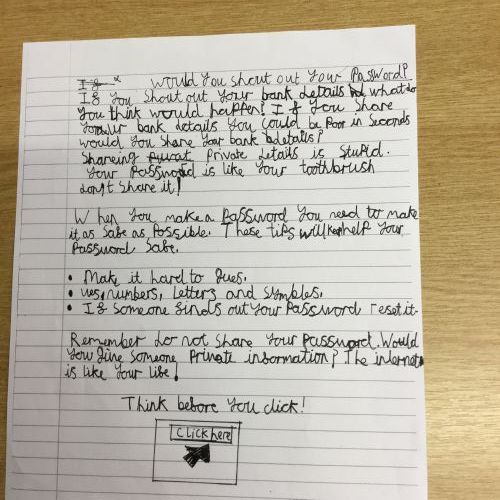 Would You shout out Your Password?
If You Shout out Your bank details what do
You think would happen? If You Share
Your bank details You Could be Poor in Seconds
Would You Share Your bank details?
Shareing Private details is Stupid.
Your Password is like Your toothbrush
don't Share it!
When You make a Password You need to make
it as Safe as Possible. These tips will help Your
Password Safe.
• Make it hard to Gues.
• ues, numbers, Letters and Symbles.
• If Someone finds out Your Password reset it.
Remember do not Share Your Password. Would
You give Someone Private information? The internet
is like Your life!
Think before You click!
Click here